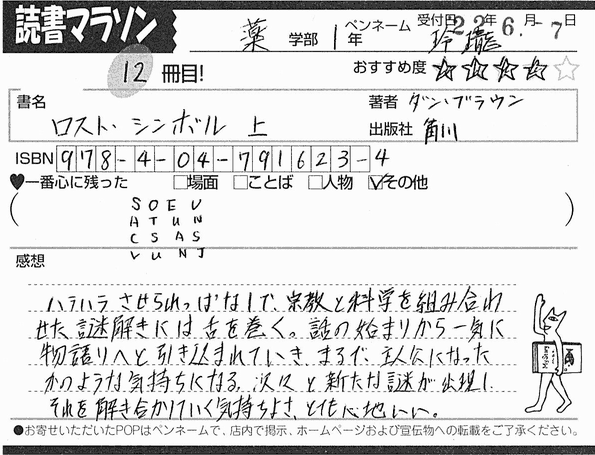 読書マラソン
薬 学部 1年 ペンネーム 玲瓏 受付日 22年 6月 -7日
12 冊目! おすすめ度 ☆☆☆☆☆
書名 著者 ダン・ブラウン
ロスト・シンボル 上 出版社 角川
ISBN 978-4-04-791623-4
♥一番心に残った □場面 □ことば □人物 ☑その他
( )
S O E U
A T U N
C S A S
V U N J
感想
ハラハラさせられっぱなしで、宗教と科学を組み合わ
せた謎解きには舌を巻く。話の始まりから一気に
物語りへと引き込まれていき、まるで、主人公になった
かのような気持ちになる。次々と新たな謎が出現し
それを解き合かしていく気持ちよさ、とても心地いい。
●お寄せいただいたPOPはペンネームで、店内で掲示、ホームページおよび宣伝物への転載をご了承ください。